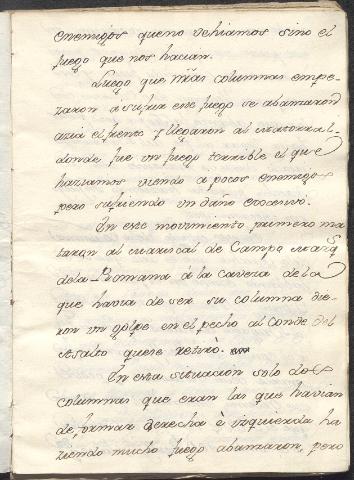 enemigos que no vehiamos sino el
fuego que nos hacian.
Luego que ntras columnas empe-
zaron a sufrir este fuego se abanzaron
azia el frente y llegaron al matorral
donde fue un fuego terrible el que
haziamos viendo a pocos enemigos
pero sufriendo un daño excecivo.
En este movimiento primero ma
taron al mariscal de Campo Marqs
de la Romana à la cavera de la
que havia de ser su columna die-
ron un golpe en el pecho al Conde del
Asalto que se retirò.
En esta situacion solo dos
columnas que eran las que havian
de formar derecha è izquierda ha
ziendo mucho fuego abanzaron, pero